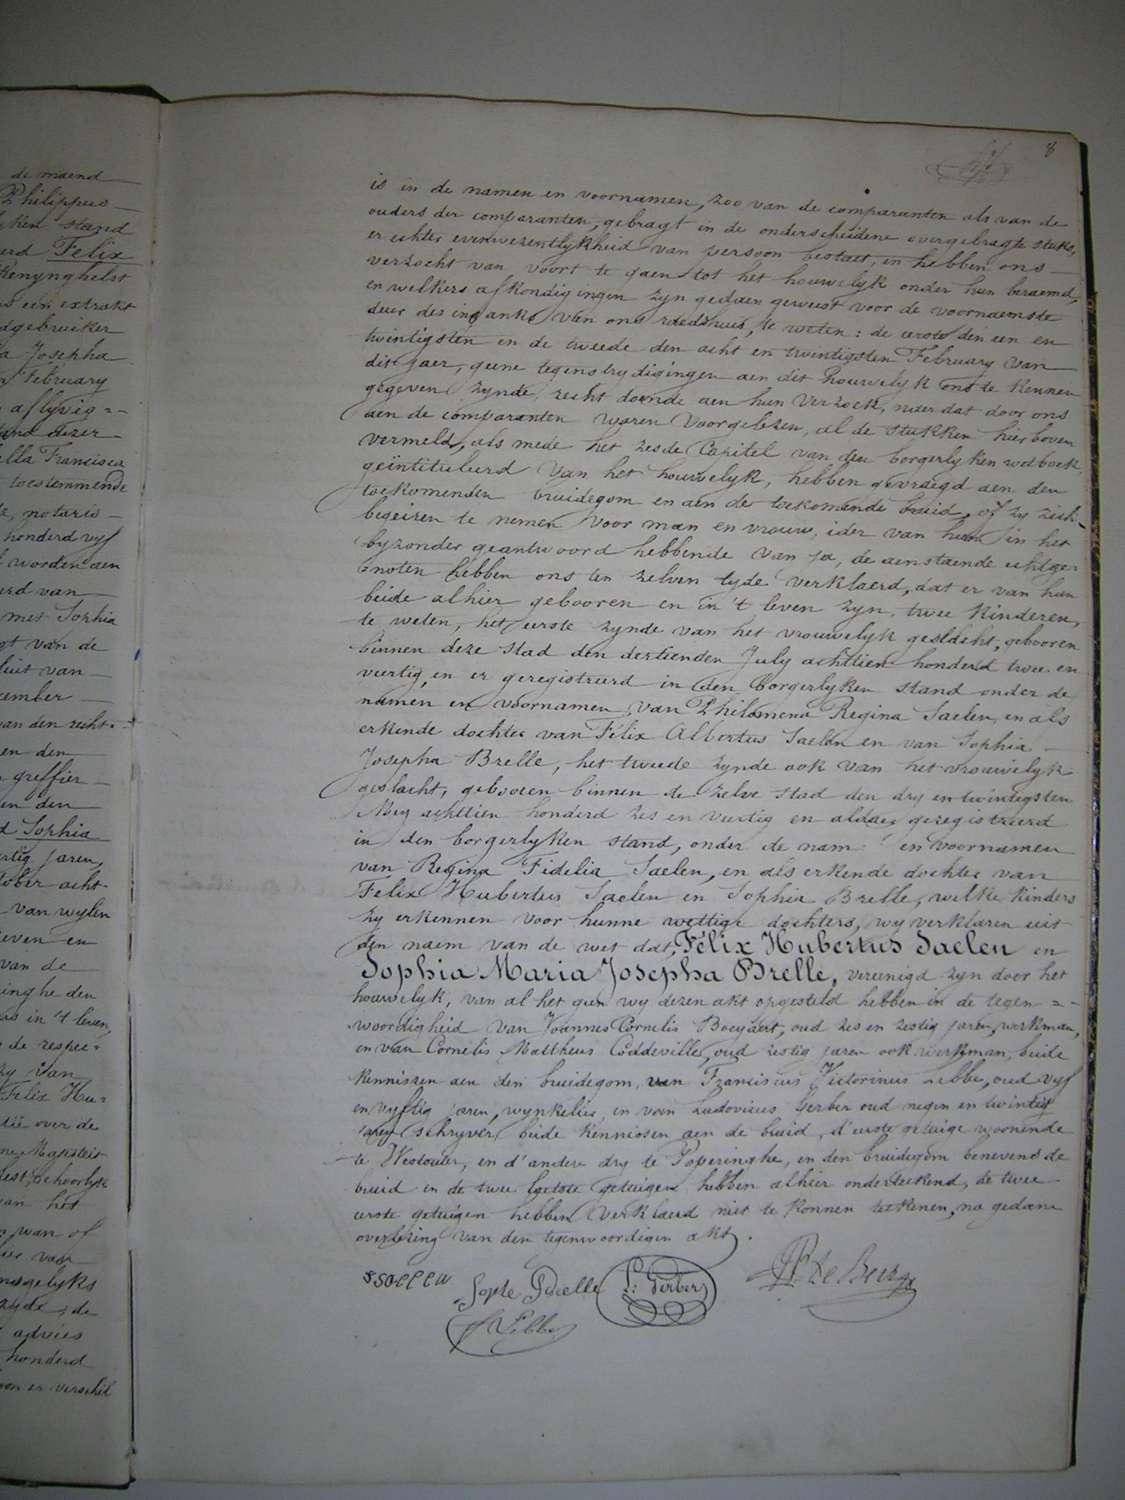 de maend
Philippus
yken stand
erd Felix
Kenynghelst
een extrakt
dgebruiker
a Josepha
February
aflyvig=
tand dezer
ella Francisca
toestemmende
notaris
honderd vyf
worden aen
erd van
met Sophia
van de
van
cember
van den recht
en den
greffier
en den
d Sophia
ertig jaren,
tober acht
van wylen
even en
van de
inghe den
in 't leven,
de respec=
zy van
Felix Hu=
over de
Majesteit
behoorlyk
van het
van of
van
nsgelyks
de
advies
honderd
er verschil
8
is in de namen en voornamen, zoo van de comparanten als van de
ouders der comparanten, gebragt in de onderscheidene overgebragte stuks,
er echter evenwezentlykheid van persoon bestaet, en hebben ons
verzocht van voort te gaen tot het houwelyk onder hun beraemd,
en welkers afkondigingen zyn gedaen geweest voor de voornaemste
deur des ingank van ons raedshuis, te weten: de eerste den een en
twintigsten en de tweede den acht en twintigsten February van
dit jaer, geene tegenstrydigingen aen dit houwelyk ons te kennen
gegeven zynde, recht doende aen hun verzoek, naer dat door ons
aen de comparanten waren voorgelezen, al de stukken hier boven
vermeld, als mede het zesde Capitel van den borgerlyken wetboek,
geïntituleerd van het houwelyk, hebben gevraegd aen den
toekomenden bruidegom en aen de toekomende bruid, of zy zich
begeiren te nemen voor man en vrouw, ider van hun in het
byzonder geantwoord hebbende van ja, de aenstaende echtge=
noten hebben ons ten zelven tyde verklaerd, dat er van hun
beide alhier gebooren en in 't leven zyn, twee kinderen,
te weten, het eerste zynde van het vrouwelyk geslacht, gebooren
binnen deze stad den dertienden July achttien honderd twee en
veertig, en er geregistreerd in den borgerlyken stand onder de
namen en voornamen van Philomena Regina Saelen, en als
erkende dochter van Félix Albertus Saelen en van Sophia
Josepha Brelle, het tweede zynde ook van het vrouwelyk
geslacht, gebooren binnen de zelve stad den dry en twintigsten
Mey achttien honderd zes en veertig en aldaer geregistreerd
in den borgerlyken stand, onder de nam en voornamen
van Regina Fidelia Saelen, en als erkende dochter van
Felix Hubertus Saelen en Sophia Brelle, welke kinders
zy erkennen voor hunne wettige dochters, wy verklaren uit
den naem van de wet dat, Félix Hubertus Saelen en
Sophia Maria Josepha Brelle, vereenigd zyn door het
houwelyk, van al het gun wy dezen akt opgesteld hebben in de tegen=
woordigheid van Joannes Cornelis Boeyaert, oud zes en zestig jaren, werkman,
en van Cornelis Mattheus Coddeville, oud zestig jaren ook werkman, beide
kennissen aen den bruidegom, van Franciscus Victorinus Lebbe, oud vyf
en vyftig jaren, wynkelier, en van Ludovicus Gerber oud negen en twintig
jaren schryver, beide kennissen aen de bruid, d'eerste getuige woonende
te Westouter, en d'andere dry te Poperinghe, en den bruidegom benevens de
bruid en de twee letste getuigen hebben alhier onderteekend, de twee
eerste getuigen hebben verklaerd niet te konnen teekenen, na gedane
overlezing van den tegenwoordigen akt.
Sophie Brelle
L: Gerbers
Lebbe